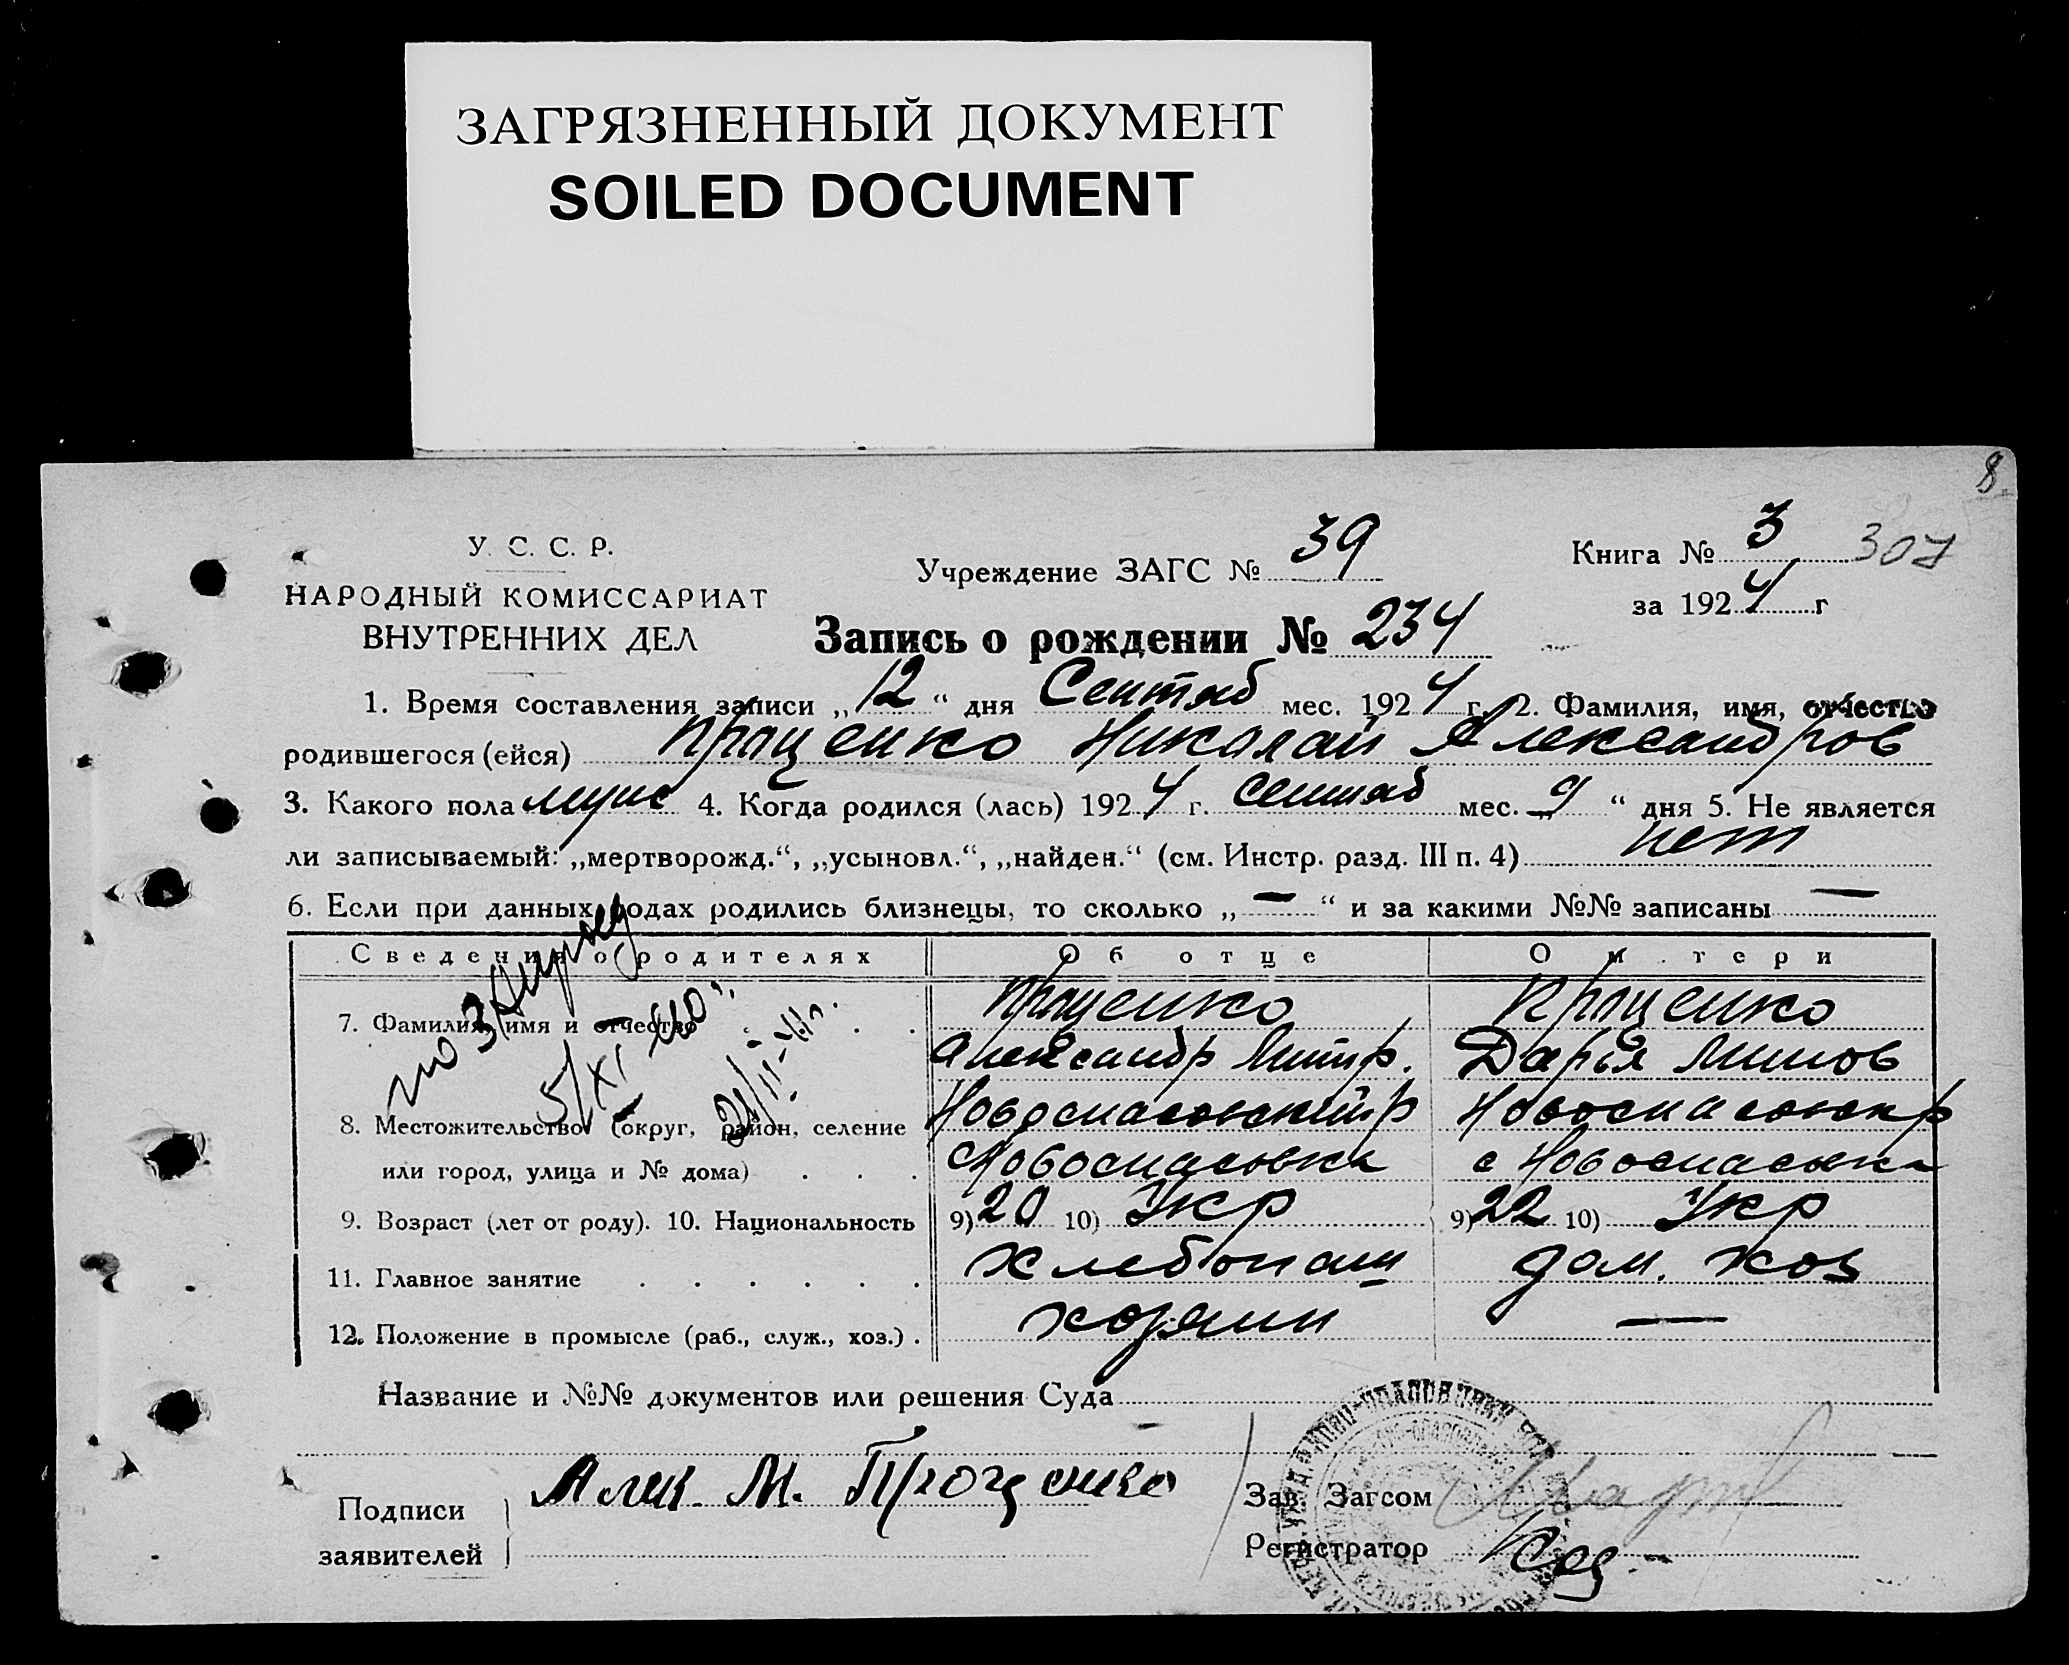 ЗАГРЯЗНЕННЫЙ ДОКУМЕНТ
SOILED DOCUMENT
8
У. С. С. Р.
НАРОДНЫЙ КОМИССАРИАТ
ВНУТРЕННИХ ДЕЛ
Учреждение ЗАГС № 39
Книга № 3 307
за 1924 г
Запись о рождении № 234
1. Время составления записи „12“ дня Сентяб мес. 1924 г. 2. Фамилия, имя, отчество
родившегося (ейся) Проценко Николай Александров
3. Какого пола муж 4. Когда родился (лась) 1924 г. сентяб мес. „9“ дня 5. Не является
ли записываемый: „мертворожд.“, „усыновл.“, „найден.“ (см. Инстр. разд. III п. 4) нет
6. Если при данных родах родились близнецы, то сколько „—“ и за какими №№ записаны —
Сведения о родителях Об отце О м тери
7. Фамилия, имя и отчество Проценко Проценко
Александр Митр. Дарья
8. Местожительство (округ, район, селение Новоспасовский р Новоспасовск р
или город, улица и № дома) с Новоспасовка с Новоспасовка
9. Возраст (лет от роду). 10. Национальность 9) 20 10) Укр 9) 22 10) Укр
11. Главное занятие хлебопаш дом. хоз
12. Положение в промысле (раб., служ., хоз.) хозяин —
по 3
5/XI
Название и №№ документов или решения Суда
Подписи заявителей Алек. М. Проценко
Зав. Загсом
Регистратор